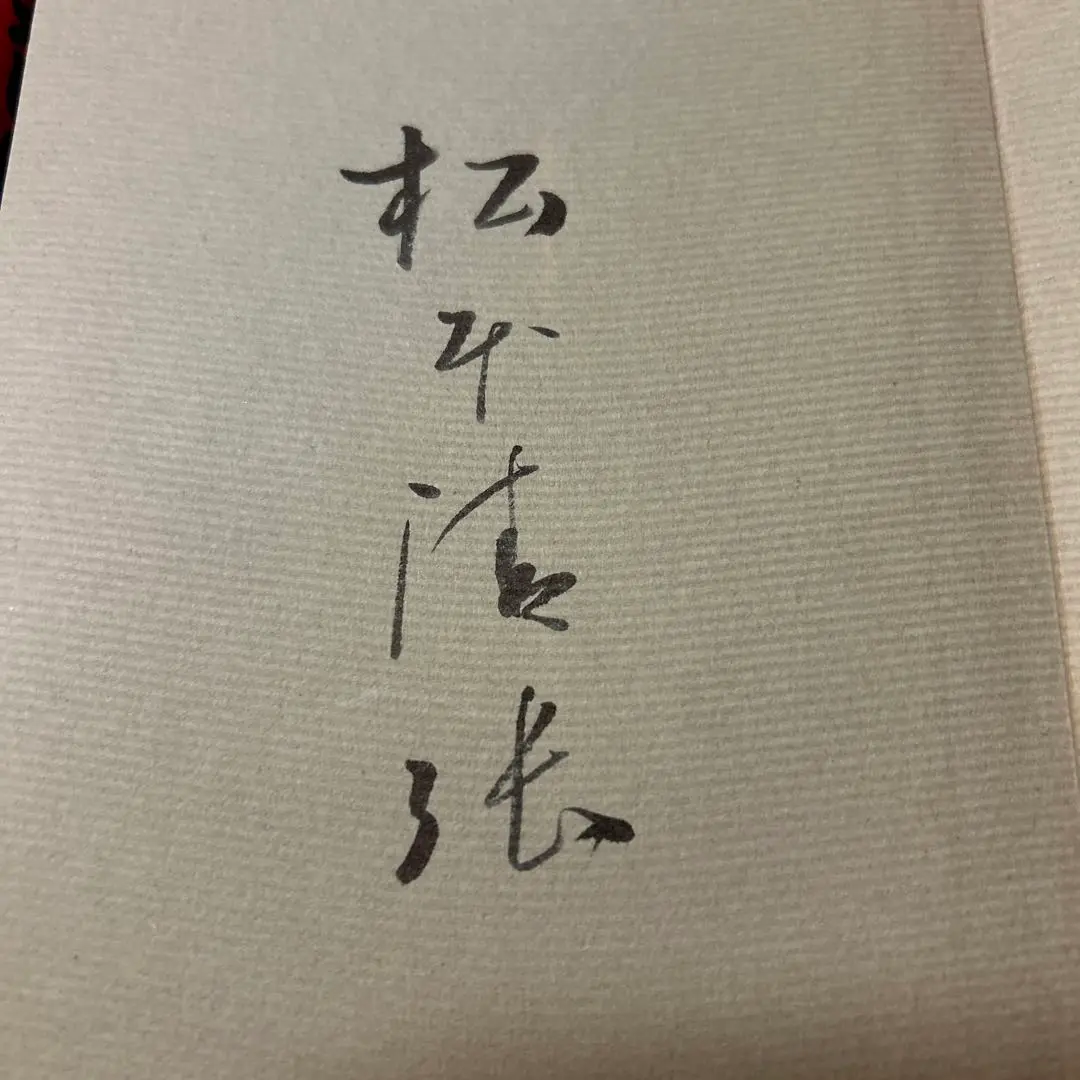 松本清張